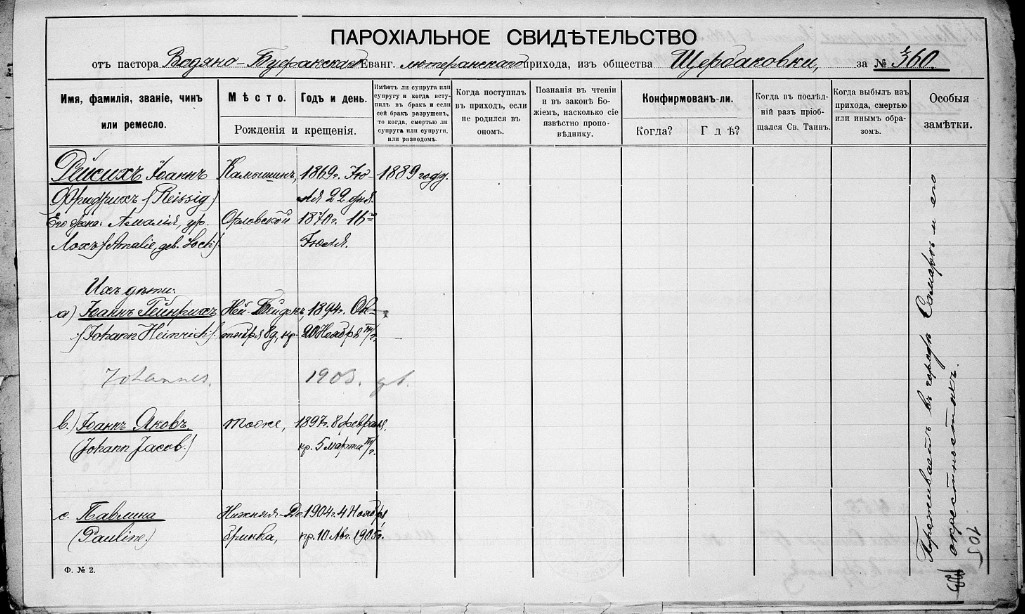 ПАРОХІАЛЬНОЕ СВИДѢТЕЛЬСТВО
отъ пастора Водяно-Буеракскаго Еванг. лютеранскаго прихода, изъ общества Щербаковки, за № 360.
Имя, фамилія, званіе, чинъ или ремесло.
Мѣсто.
Годъ и день.
Рожденія и крещенія.
Имѣетъ ли супруга или супругу и когда вступилъ въ бракъ и если сей бракъ разрушенъ, то когда, смертью ли супруга или супруги, или разводомъ.
Когда поступилъ въ приходъ, если не родился въ ономъ.
Познанія въ чтеніи и въ законѣ Божіемъ, насколько сіе извѣстно проповѣднику.
Конфирмованъ-ли.
Когда?
Гдѣ?
Когда въ послѣдній разъ пріобщался Св. Таинъ.
Когда выбылъ изъ прихода, смертью или инымъ образомъ.
Особыя замѣтки.
Рейсихъ Іоаннъ Камышинъ, 1869 г. Ію- 1889 году.
Фридрихъ (Reissig) ля 22 дня.
Его жена Амалія, ур. Орловской 1870 г. 16го
Лохъ (Amalie, geb. Loch) Іюля.
Ихъ дѣти:
а) Іоаннъ Гейнрихъ 1894 г. Ок-
(Johann Heinrich) тября 8 д, кр. 20 Ноября
Johannes. 1903.
в.) Іоаннъ Яковъ тоже, 1897 г. 8 февраля
(Johann Jacob.) кр. 5 марта
с. Павлина Нижняя-До- 1904 г. 4 Ноября
(Pauline) бринка, кр. 10 Авг. 1905 г.
Проживаетъ въ городѣ Самарѣ и его окрестностяхъ.
705
Ф. № 2.